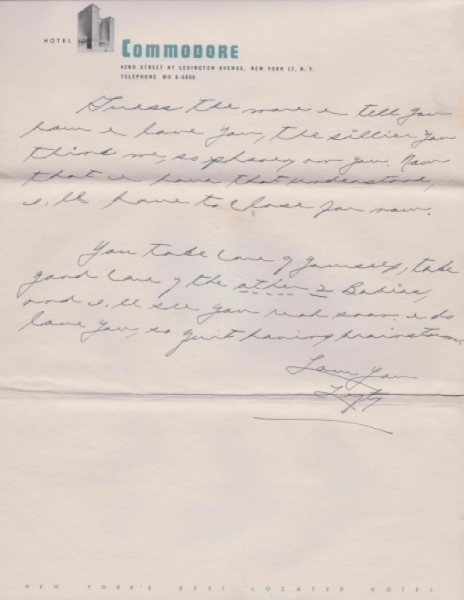 HOTEL COMMODORE
42ND STREET AT LEXINGTON AVENUE, NEW YORK 17, N. Y.
TELEPHONE MU 6-6000
Guess the more I tell you
how I love you, the sillier you
think me, so phooey on you. Now
that we have that understood,
I'll have to close for now.
You take care of yourself, take
good care of the other 2 Babies,
and I'll see you real soon. I do
love you, so quit having brainstorms.
Love You
NEW YORK'S BEST LOCATED HOTEL